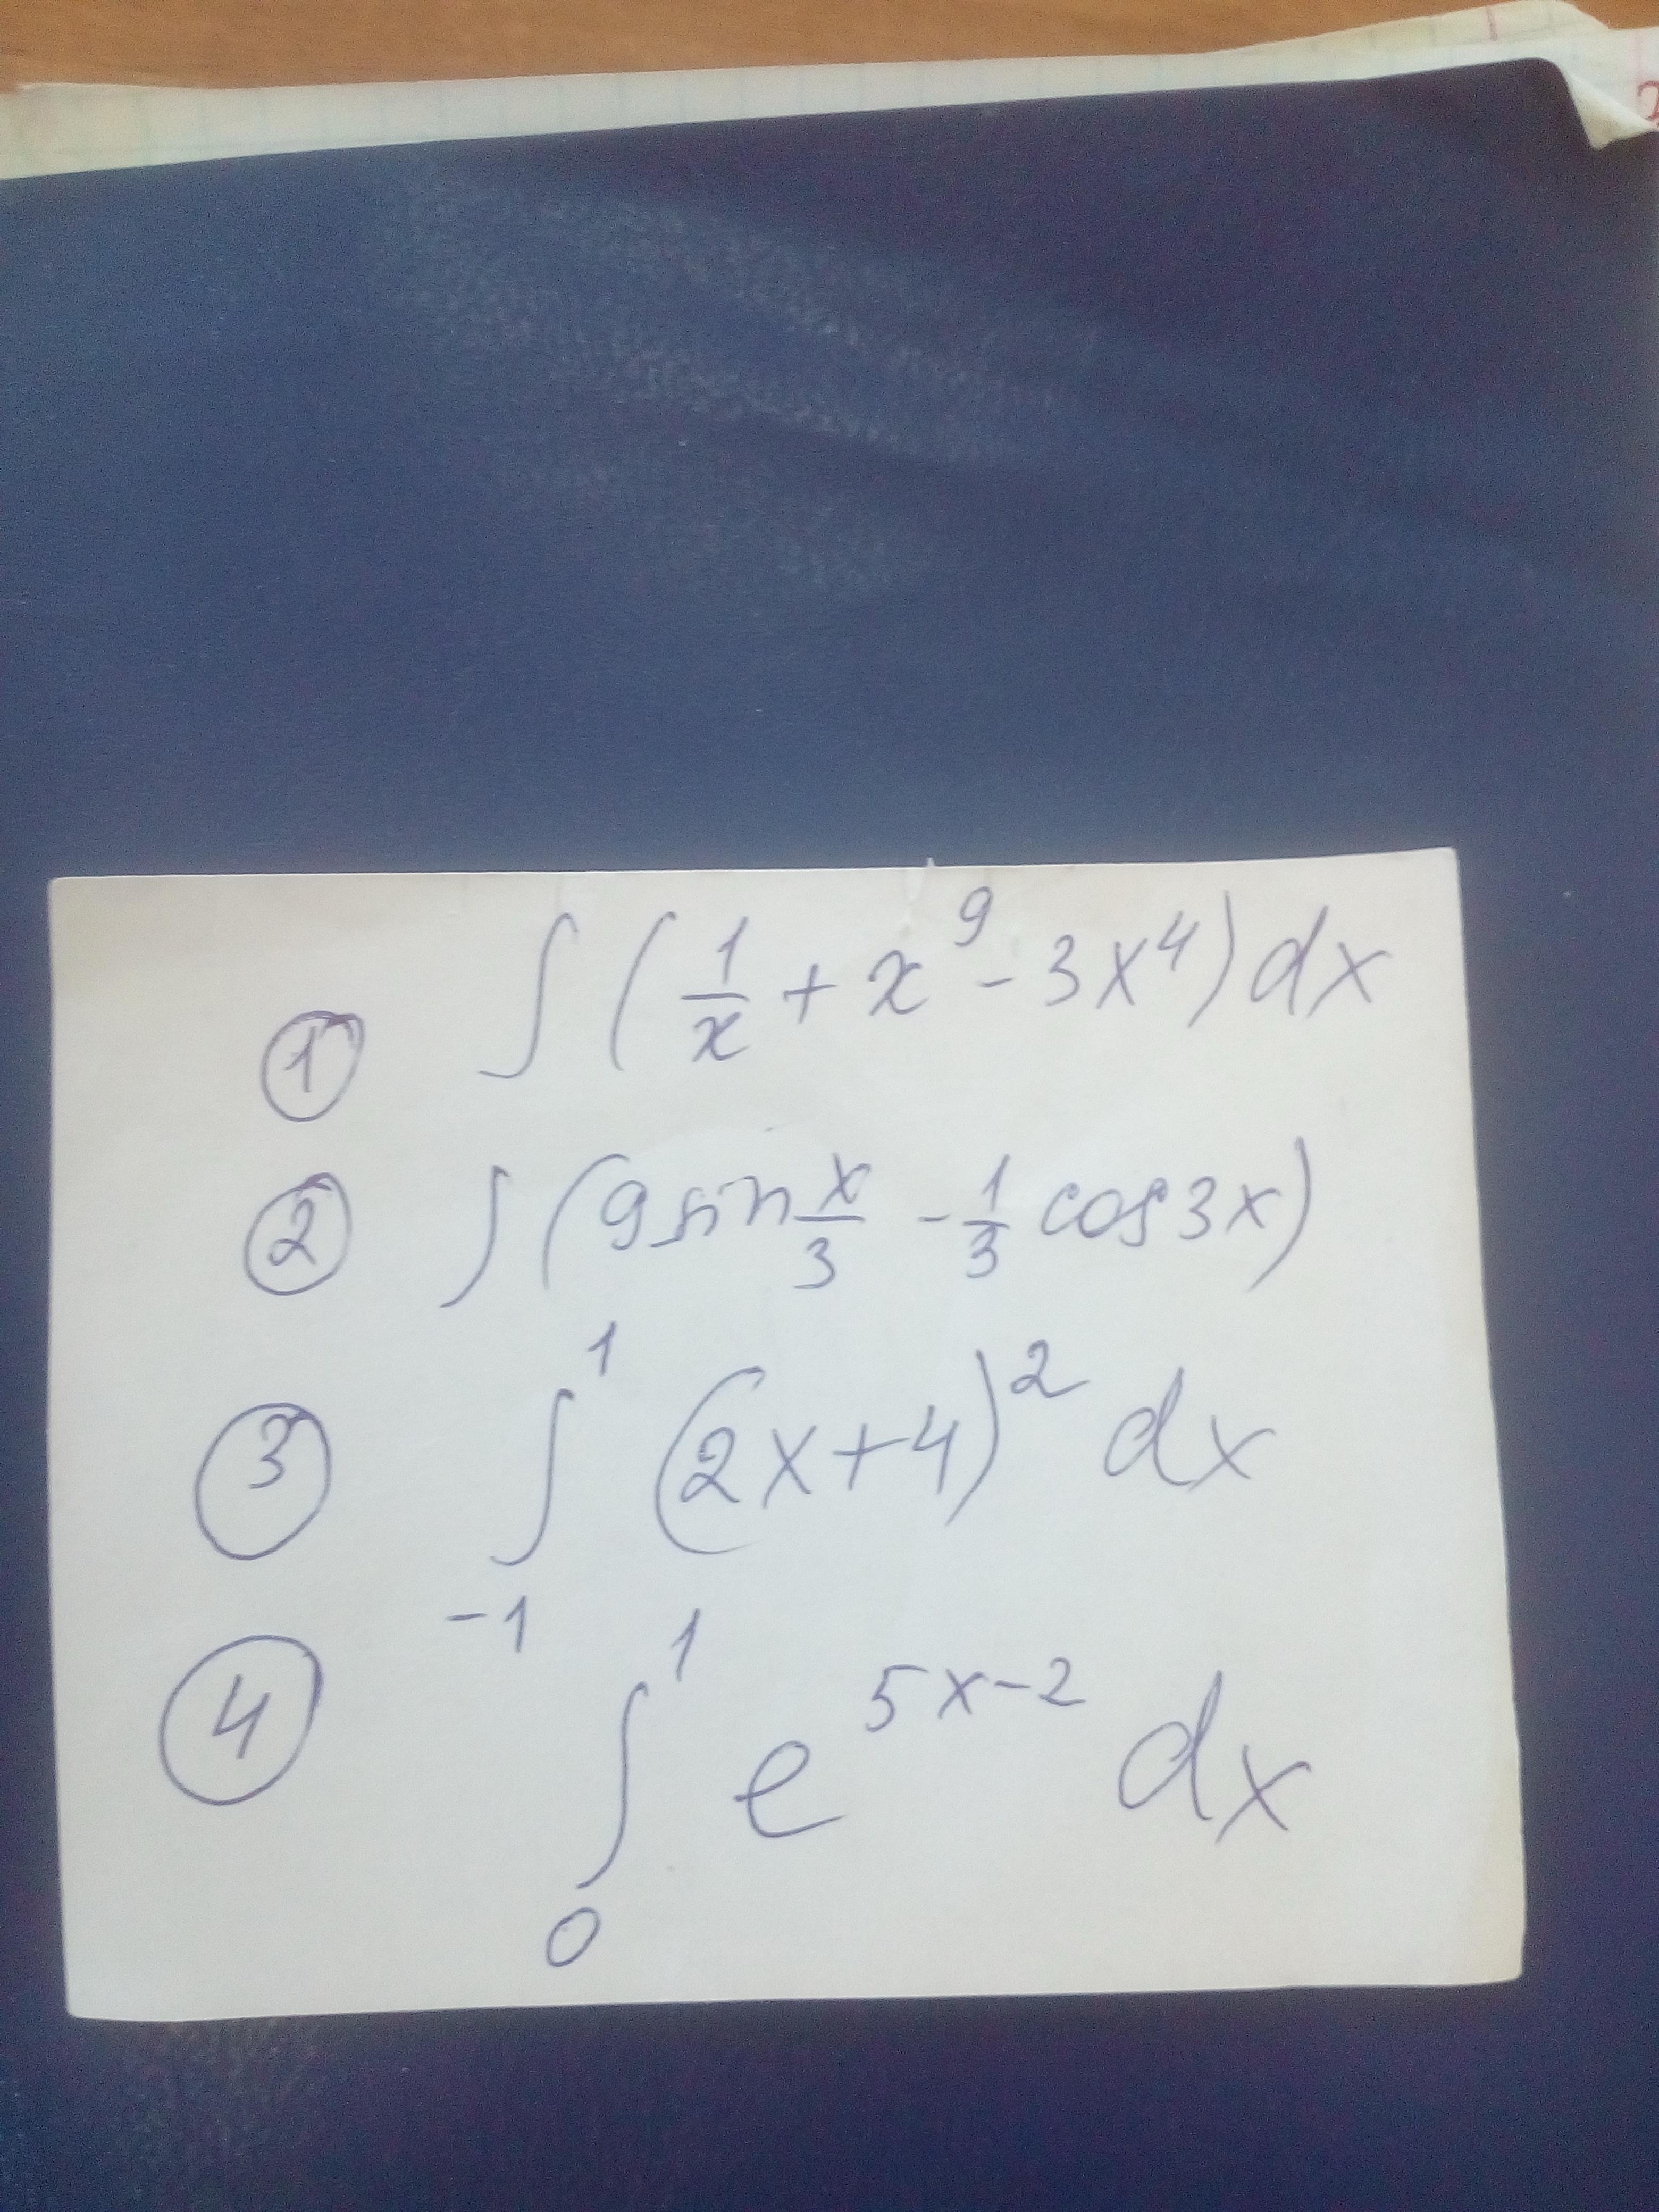 ① ∫ (1/x + x⁹ - 3x⁴) dx
② ∫ (9 sin x/3 - 1/3 cos 3x)
③ ∫₋₁¹ (2x+4)² dx
④ ∫₀¹ e^(5x-2) dx